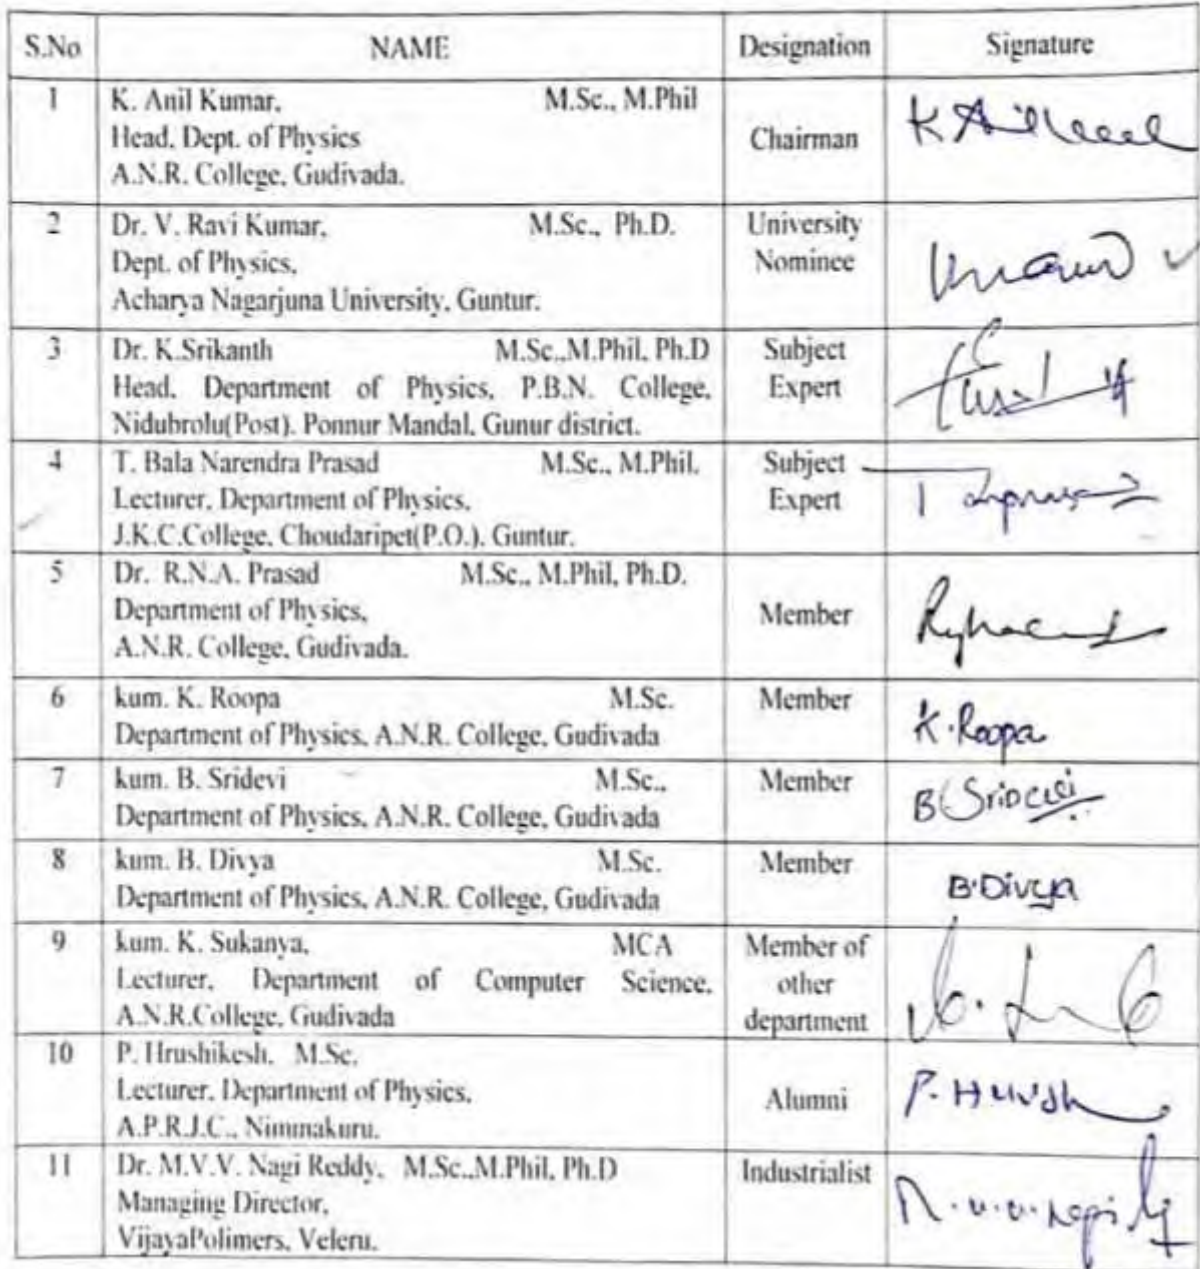 S.No NAME Designation Signature
1 K. Anil Kumar, M.Sc., M.Phil
Head, Dept. of Physics
A.N.R. College, Gudivada.
Chairman
K Anil
2 Dr. V. Ravi Kumar, M.Sc., Ph.D.
Dept. of Physics,
Acharya Nagarjuna University, Guntur.
University
Nominee
3 Dr. K.Srikanth M.Sc.,M.Phil, Ph.D
Head, Department of Physics, P.B.N. College,
Nidubrolu(Post). Ponnur Mandal, Gunur district.
Subject
Expert
4 T. Bala Narendra Prasad M.Sc., M.Phil.
Lecturer, Department of Physics,
J.K.C.College, Choudaripet(P.O.). Guntur.
Subject
Expert
5 Dr. R.N.A. Prasad M.Sc., M.Phil, Ph.D.
Department of Physics,
A.N.R. College, Gudivada.
Member
6 kum. K. Roopa M.Sc.
Department of Physics, A.N.R. College, Gudivada
Member
K. Roopa
7 kum. B. Sridevi M.Sc.,
Department of Physics, A.N.R. College, Gudivada
Member
B Sridevi
8 kum. B. Divya M.Sc.
Department of Physics, A.N.R. College, Gudivada
Member
B.Divya
9 kum. K. Sukanya, MCA
Lecturer, Department of Computer Science,
A.N.R.College, Gudivada
Member of
other
department
10 P. Hrushikesh, M.Sc.
Lecturer, Department of Physics,
A.P.R.J.C., Nimmakuru.
Alumni
P. Hrush
11 Dr. M.V.V. Nagi Reddy, M.Sc.,M.Phil, Ph.D
Managing Director,
VijayaPolimers, Veleru.
Industrialist